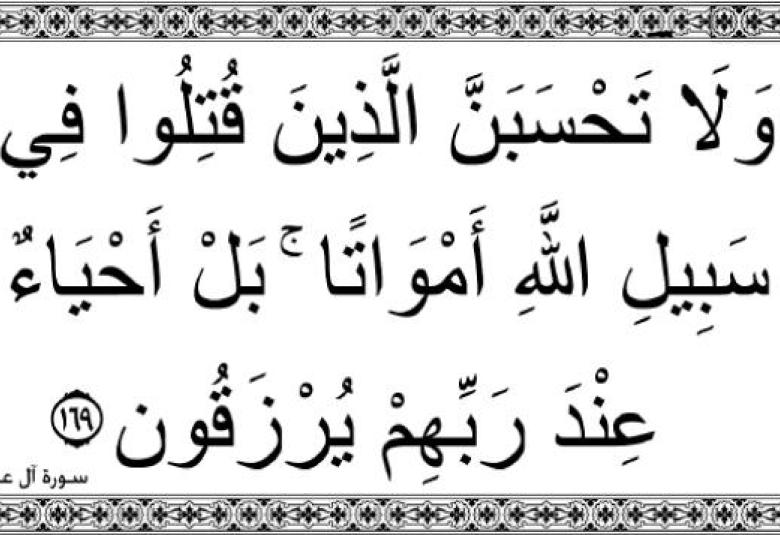 وَلَا تَحْسَبَنَّ الَّذِينَ قُتِلُوا فِي
سَبِيلِ اللَّهِ أَمْوَاتًا ۚ بَلْ أَحْيَاءٌ
عِنْدَ رَبِّهِمْ يُرْزَقُون ١٦٩
سورة آل ع